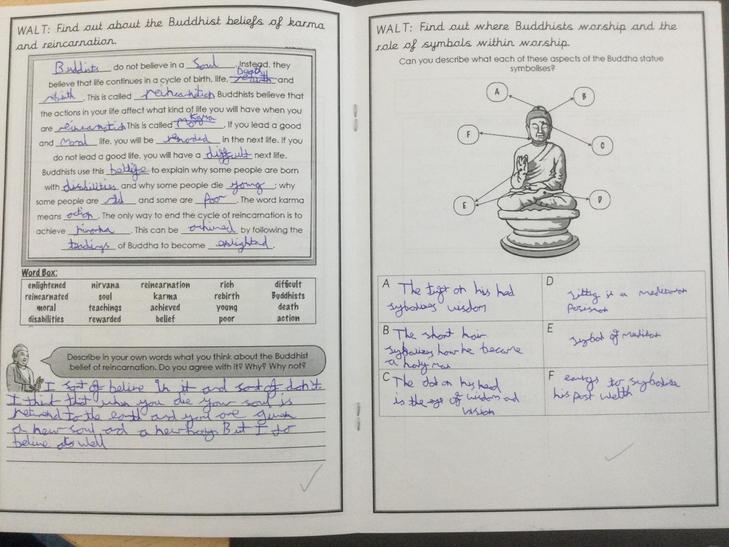 WALT: Find out about the Buddhist beliefs of karma
and reincarnation.
Buddists do not believe in a Soul. Instead, they
believe that life continues in a cycle of birth, life, Death and
rebirth. This is called reincarnation Buddhists believe that
the actions in your life affect what kind of life you will have when you
are reincarnation This is called Karma. If you lead a good
and moral life, you will be rewarded in the next life. If you
do not lead a good life, you will have a difficult next life.
Buddhists use this to explain why some people are born
with disabilities and why some people die young; why
some people are and some are Poor. The word karma
means action. The only way to end the cycle of reincarnation is to
achieve nirvana. This can be achieved by following the
of Buddha to become
Word Box:
enlightened nirvana reincarnation rich difficult
reincarnated soul karma rebirth Buddhists
moral teachings achieved young death
disabilities rewarded belief poor action
Describe in your own words what you think about the Buddhist
belief of reincarnation. Do you agree with it? Why? Why not?
I sort of believe in it and sort of don't
I think that when you die your soul is
to the earth and you are given
a new soul and a new body But I do
believe as well
WALT: Find out where Buddhists worship and the
role of symbols within worship.
Can you describe what each of these aspects of the Buddha statue
symbolises?
A
B
F
C
E
D
A The on his had
wisdom
B The short hair
how he became
a holy man
C The dot on his head
is the eye of wisdom and
wisdom
D
sitting in a
E
symbol of
F
his past welth